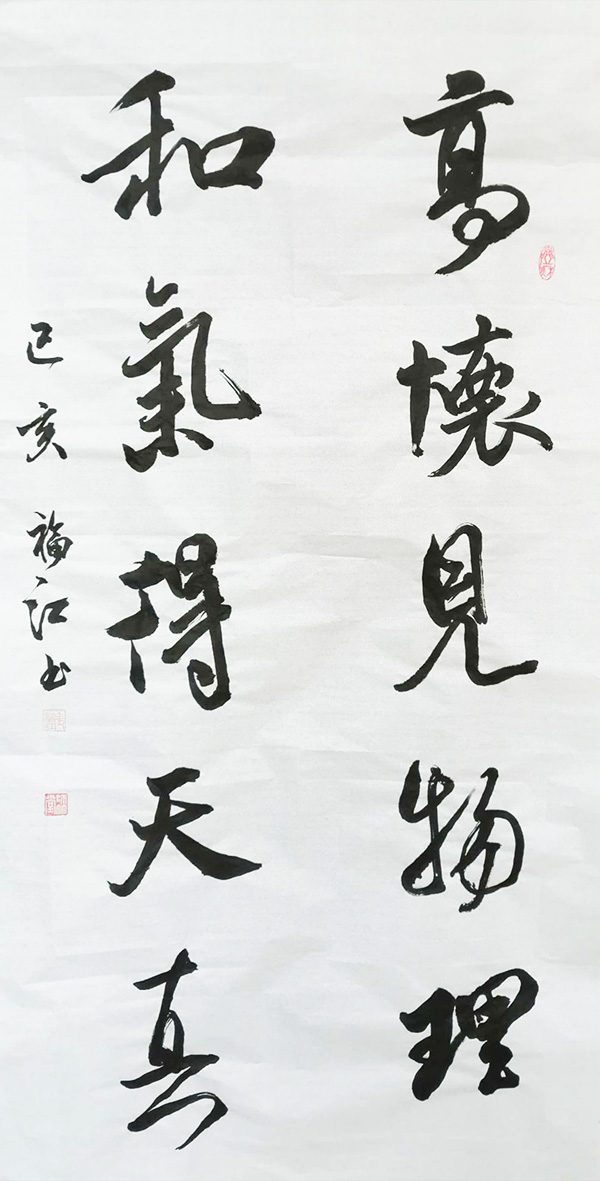 高懷見物理
和氣得天真
己亥 福江书